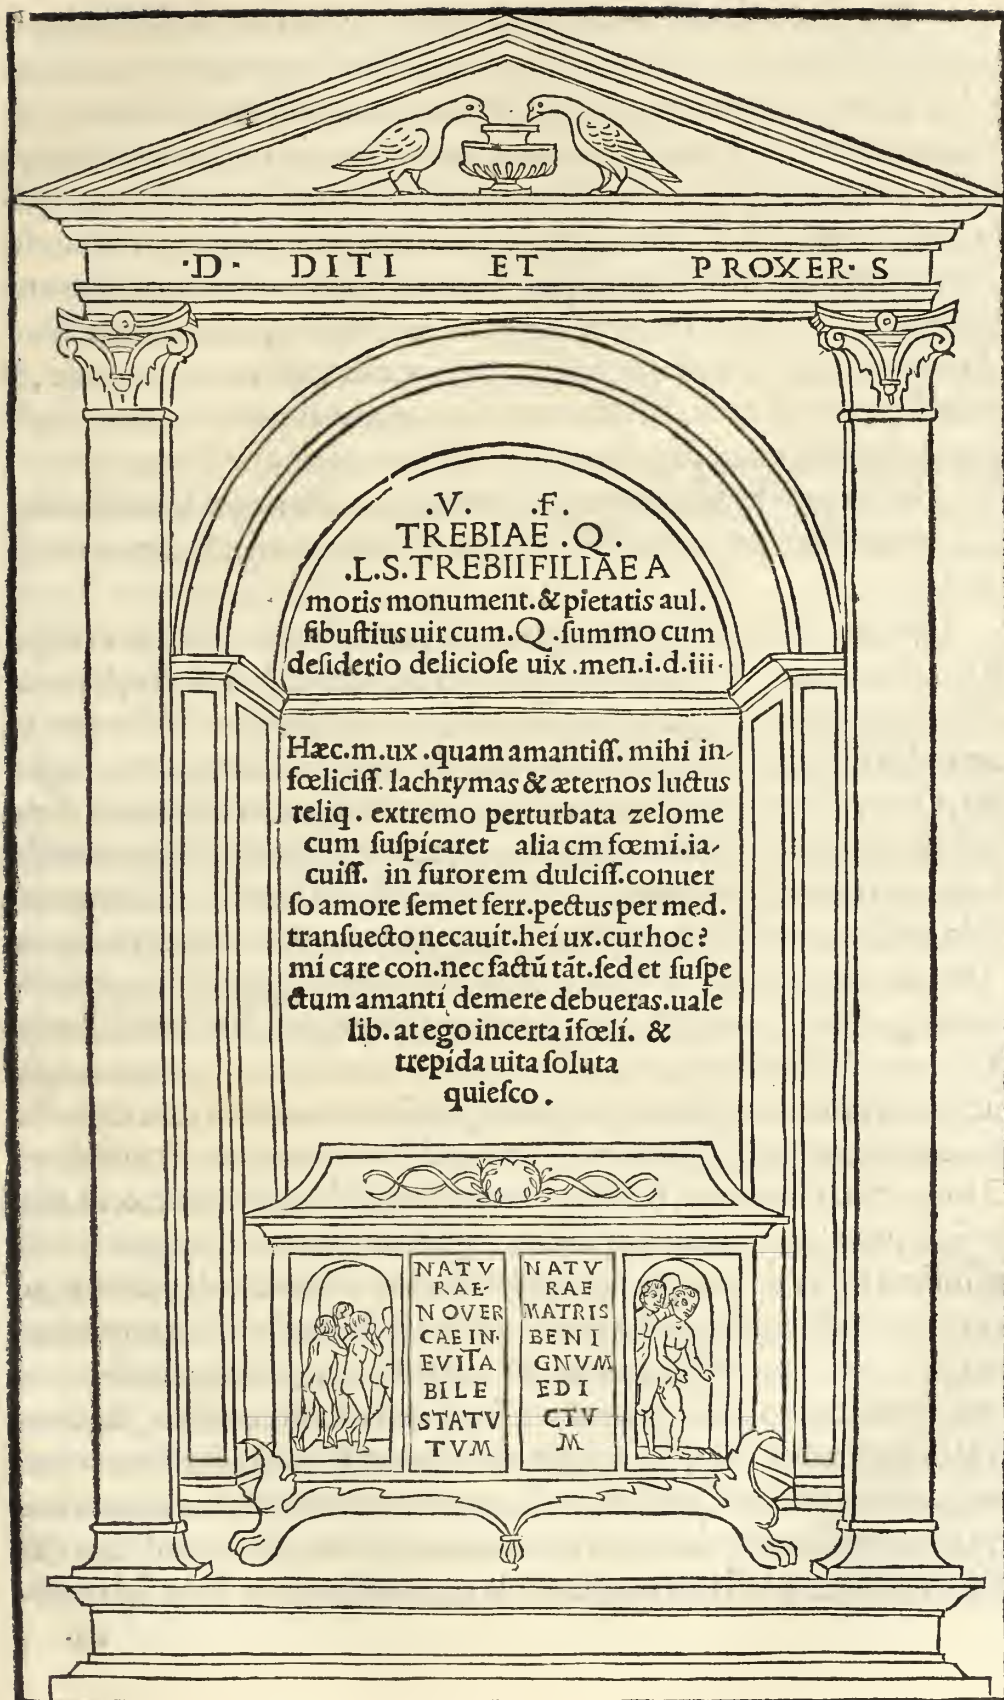 ·D· DITI ET PROXER· S
.V. .F.
TREBIAE .Q.
.L.S.TREBII FILIAE A
moris monument.& pietatis aul.
ſibuſtius uir cum.Q.ſummo cum
deſiderio delicioſe uix.men.i.d.iii·
Hæc.m.ux.quam amantiſſ. mihi in-
fœliciſſ. lachrymas & æternos luctus
reliq. extremo perturbata zelome
cum ſuſpicaret alia cm fœmi.ia-
cuiſſ. in furorem dulciſſ.conuer
ſo amore ſemet ferr.pectus per med.
tranſuecto necauit.hei ux.cur hoc?
mi care con.nec factũ tãt.ſed et ſuſpe
ctum amanti demere debueras.uale
lib. at ego incerta ĩfœli. &
trepida uita ſoluta
quieſco.
NATV
RAE·
NOVER
CAE IN·
EVITA
BILE
STATV
TVM
NATV
RAE
MATRIS
BENI
GNVM
EDI
CTV
M